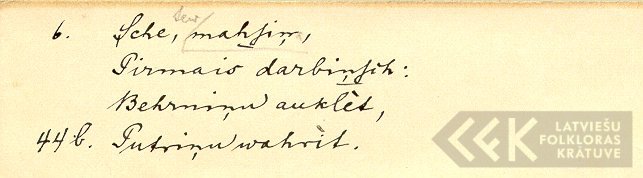 tew
6. Sche, mahsiņ,
Pirmais darbiņsch:
Behrniņu auklēt,
44b. Putriņu wahrit.
LATVIEŠU
FOLKLORAS
KRĀTUVE